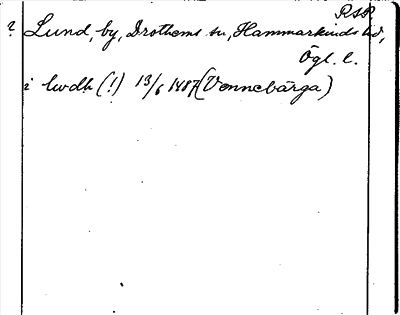 RSP.
? Lund, by, Drothems sn, Hammarkinds hd,
Ögl. l.
i lwdh (!) 13/6 1487 (Vennebärga)